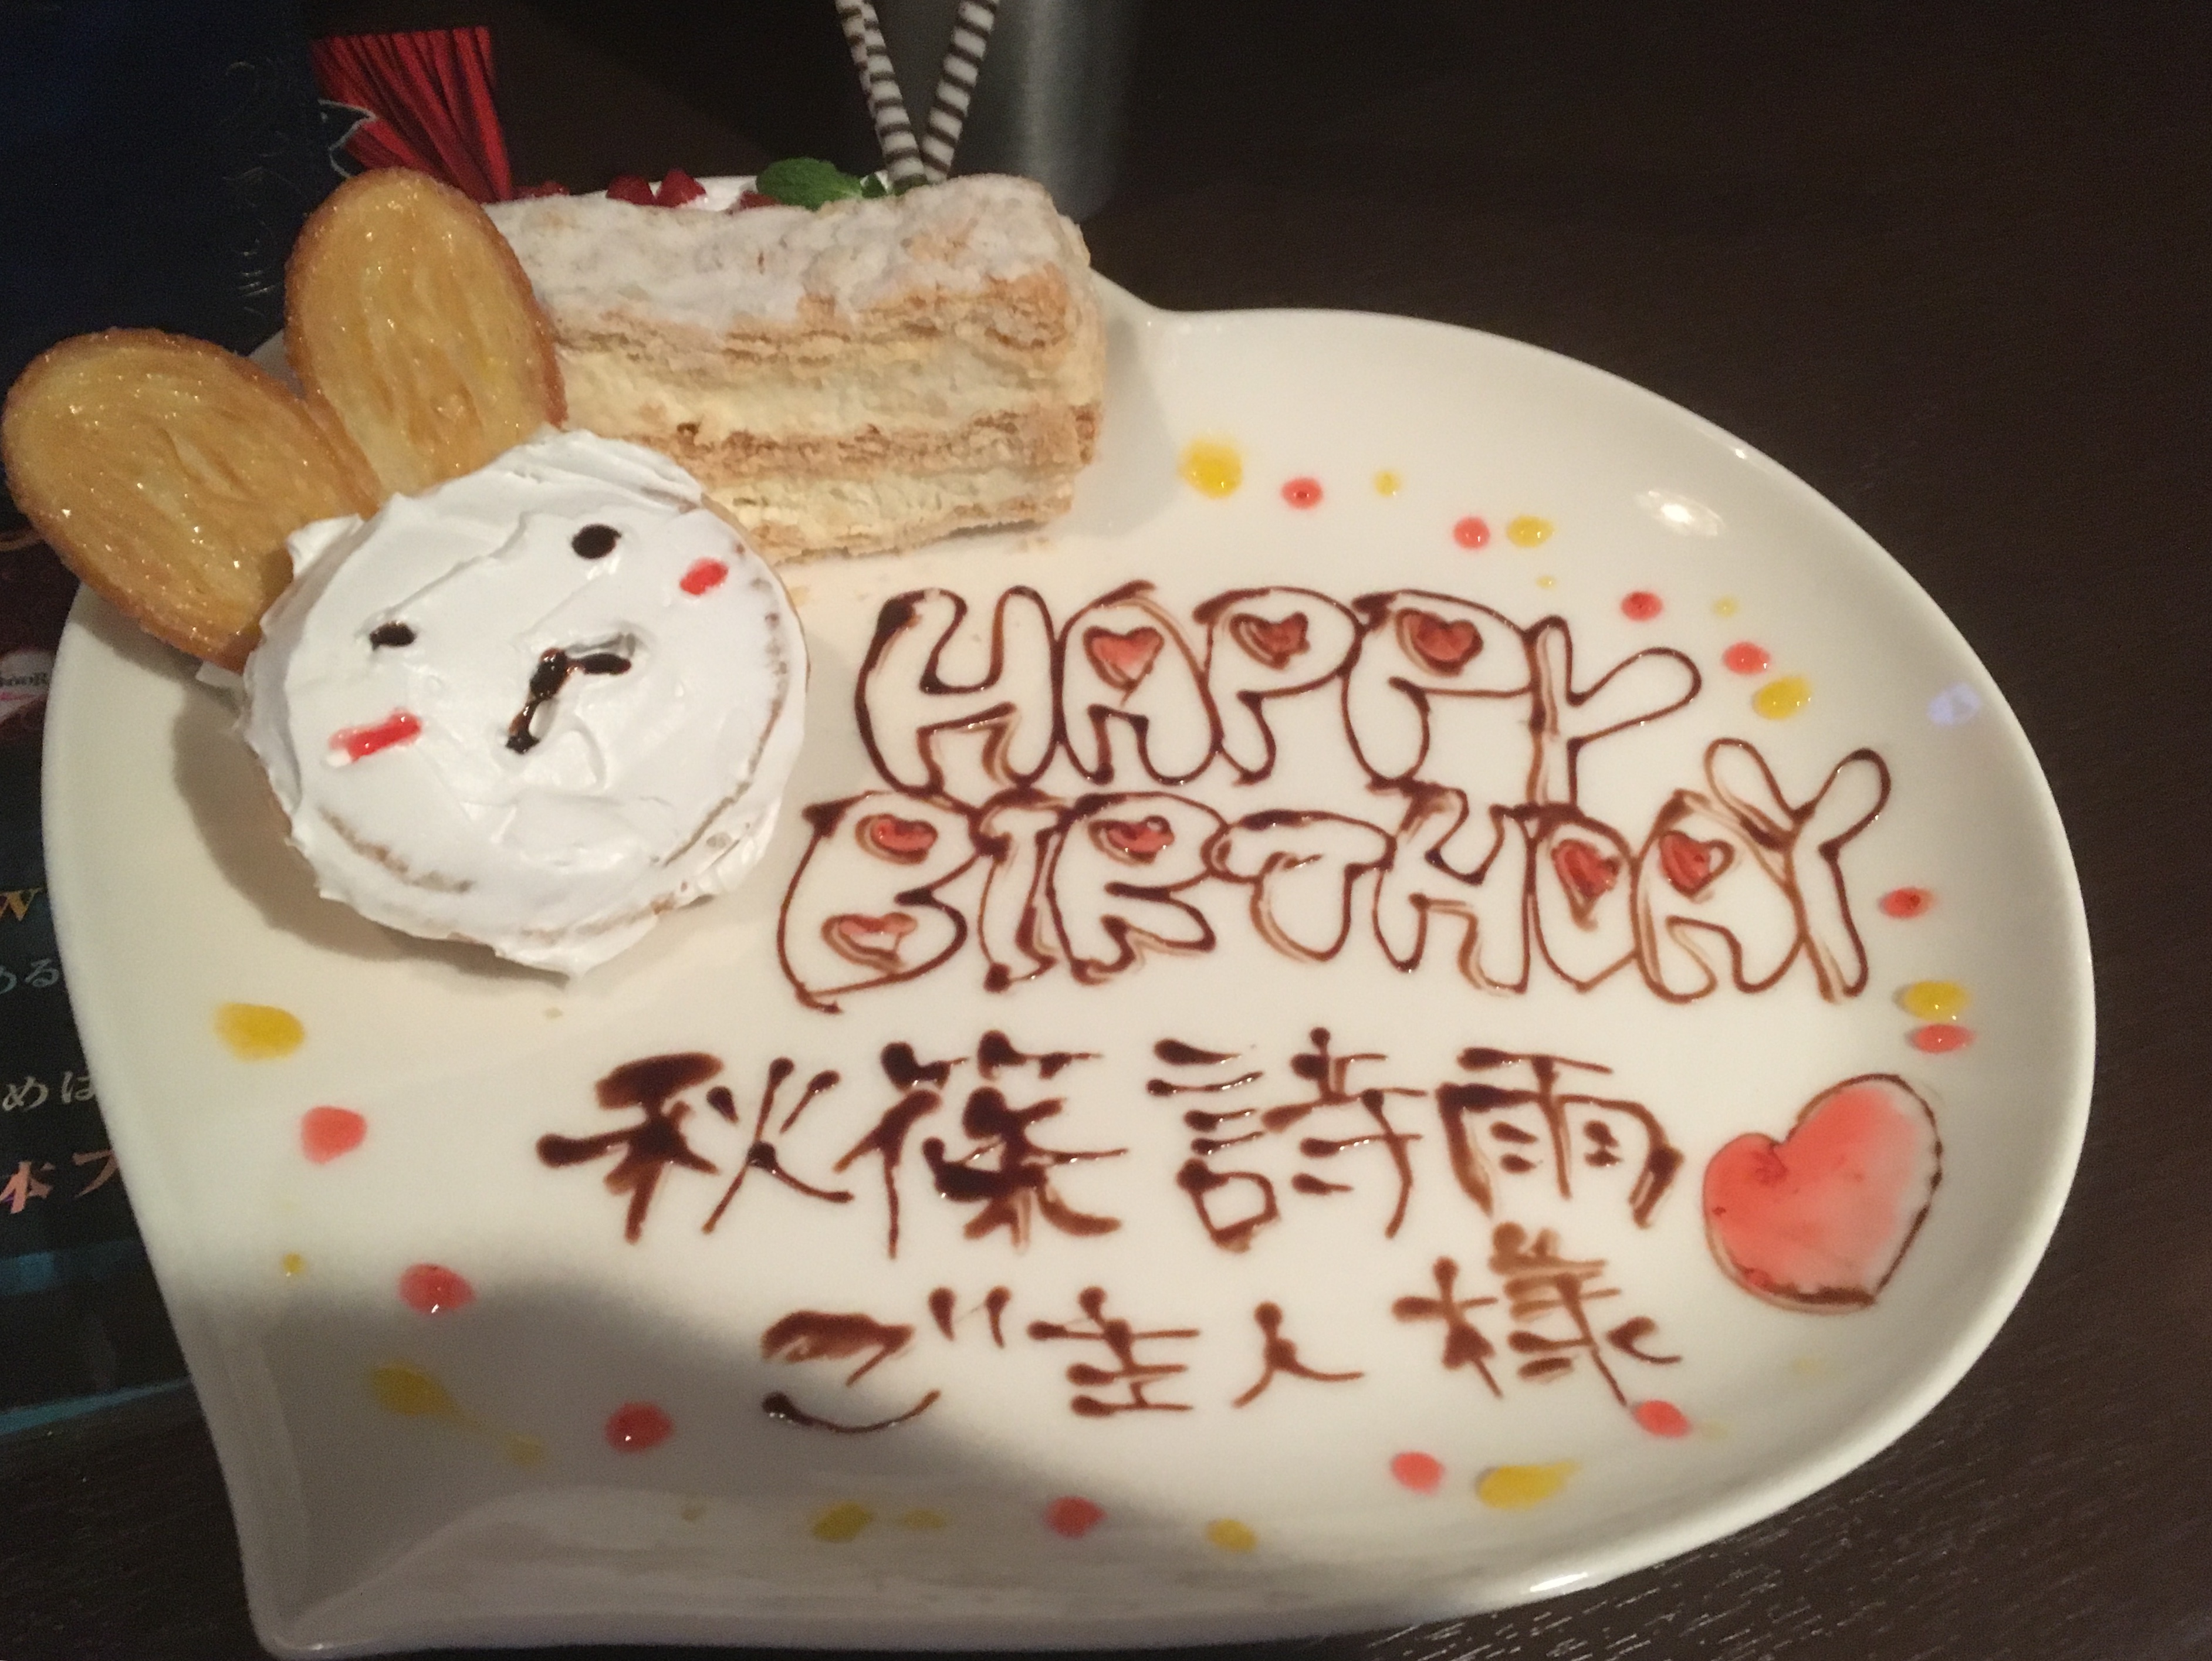 HAPPY
BIRTHDAY
秋篠 詩雨
ご主人様
W
める
めは
本フ